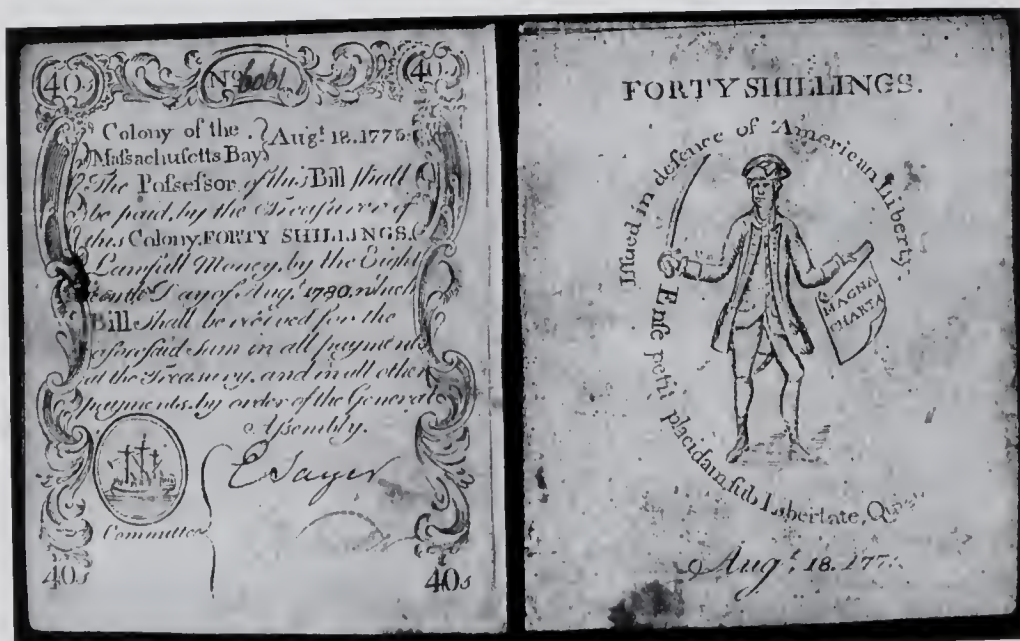 40s Nº 6061 40
Colony of the Augt. 18. 1775.
Massachusetts Bay
The Possessor of this Bill shall
be paid, by the Treasurer of
this Colony, FORTY SHILLINGS.
Lawfull Money, by the Eigh
teenth Day of Augt. 1780. which
Bill Shall be received for the
aforesaid Sum in all payments
at the Treasury, and in all other
payments, by order of the General
Assembly.
E Sayer
Committee
40s 40s
FORTY SHILLINGS.
Issued in defence of American Liberty.
Ense petit placidam sub Libertate,
MAGNA
CHARTA
Augt. 18. 177